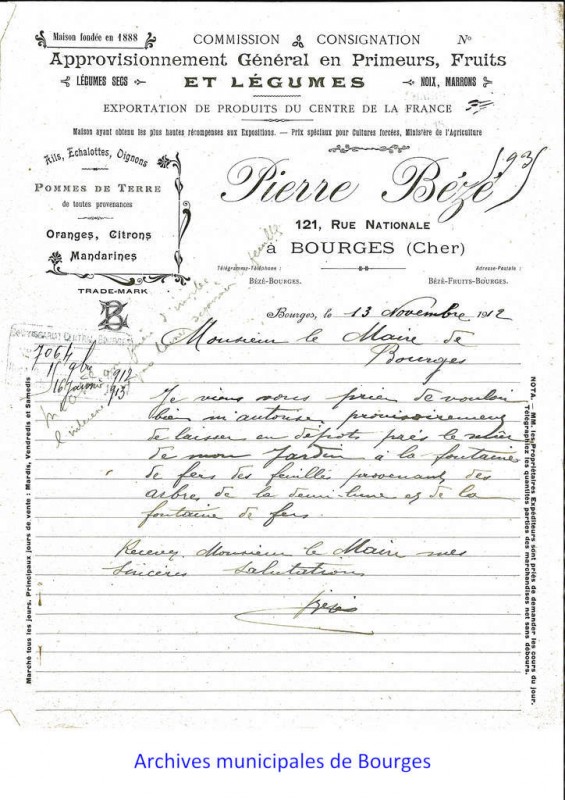 Maison fondée en 1888
COMMISSION & CONSIGNATION
N°
Approvisionnement Général en Primeurs, Fruits
LÉGUMES SECS
ET LÉGUMES
NOIX, MARRONS
EXPORTATION DE PRODUITS DU CENTRE DE LA FRANCE
Maison ayant obtenu les plus hautes récompenses aux Expositions. — Prix spéciaux pour Cultures forcées, Ministère de l'Agriculture
Ails, Echalottes, Oignons
POMMES DE TERRE
de toutes provenances
Oranges, Citrons
Mandarines
TRADE-MARK
Pierre Bézé
93
121, RUE NATIONALE
à BOURGES (Cher)
Télégramme-Téléphone :
BÉZÉ-BOURGES.
Adresse-Postale :
BÉZÉ-FRUITS-BOURGES.
Bourges, le 13 Novembre 1912
Monsieur le Maire de
Bourges
COMMISSARIAT CENTRAL BOURGES
7064
1912
16 Janvier 1913
Je viens vous prier de vouloir
bien m'autorise provisoirement
de laisser en dépots prés le mur
de mon Jardin à la fontaine
de fers des feuilles provenant des
arbres de la demi-lune et de la
fontaine de fers.
Recevez Monsieur le Maire mes
Sincères Salutations
Bézé
Marché tous les jours. Principaux jours de vente : Mardis, Vendredis et Samedis
NOTA. — MM. les Propriétaires Expéditeurs sont priés de demander les cours du jour.
Télégraphiez les quantités parties des marchandises net sans débours.
Archives municipales de Bourges